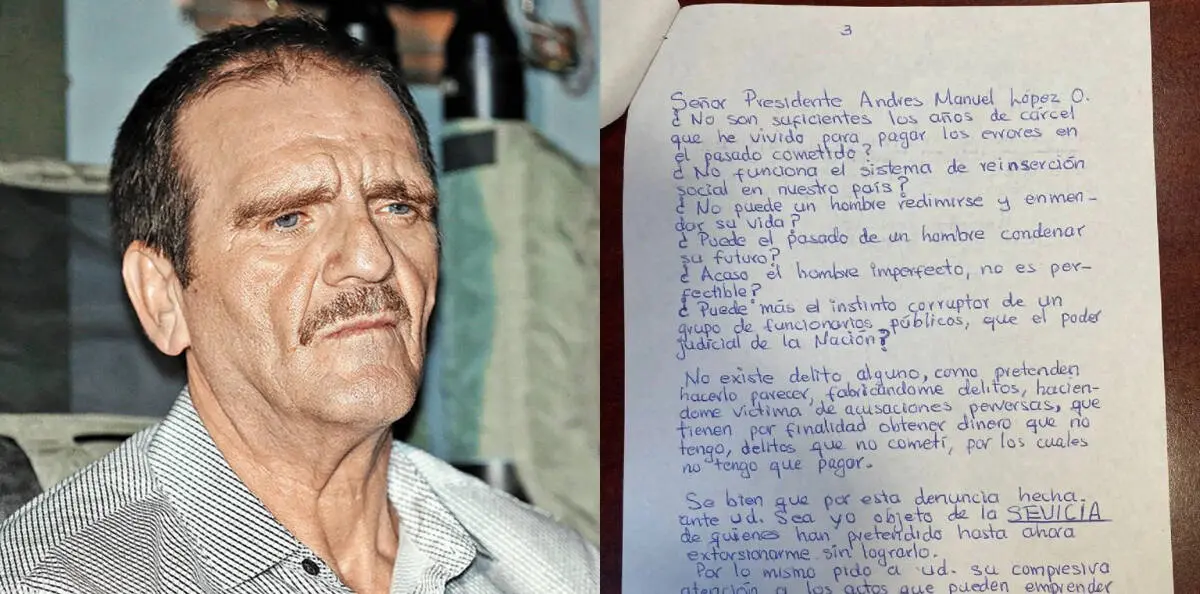 3
Señor Presidente Andres Manuel López O.
¿ No son suficientes los años de cárcel
que he vivido para pagar los errores en
el pasado cometido?
¿ No funciona el sistema de reinserción
social en nuestro país?
¿ No puede un hombre redimirse y enmen-
dar su vida?
¿ Puede el pasado de un hombre condenar
su futuro?
¿ Acaso el hombre imperfecto, no es per-
fectible?
¿ Puede más el instinto corruptor de un
grupo de funcionarios públicos, que el poder
judicial de la Nación?
No existe delito alguno, como pretenden
hacerlo parecer, fabricándome delitos, hacien-
dome víctima de acusaciones perversas, que
tienen por finalidad obtener dinero que no
tengo, delitos que no cometí, por los cuales
no tengo que pagar.
Se bien que por esta denuncia hecha
ante ud. Sea yo objeto de la SEVICIA
de quienes han pretendido hasta ahora
extorsionarme sin lograrlo.
Por lo mismo pido a ud. su compresiva
atención a los actos que pueden emprender